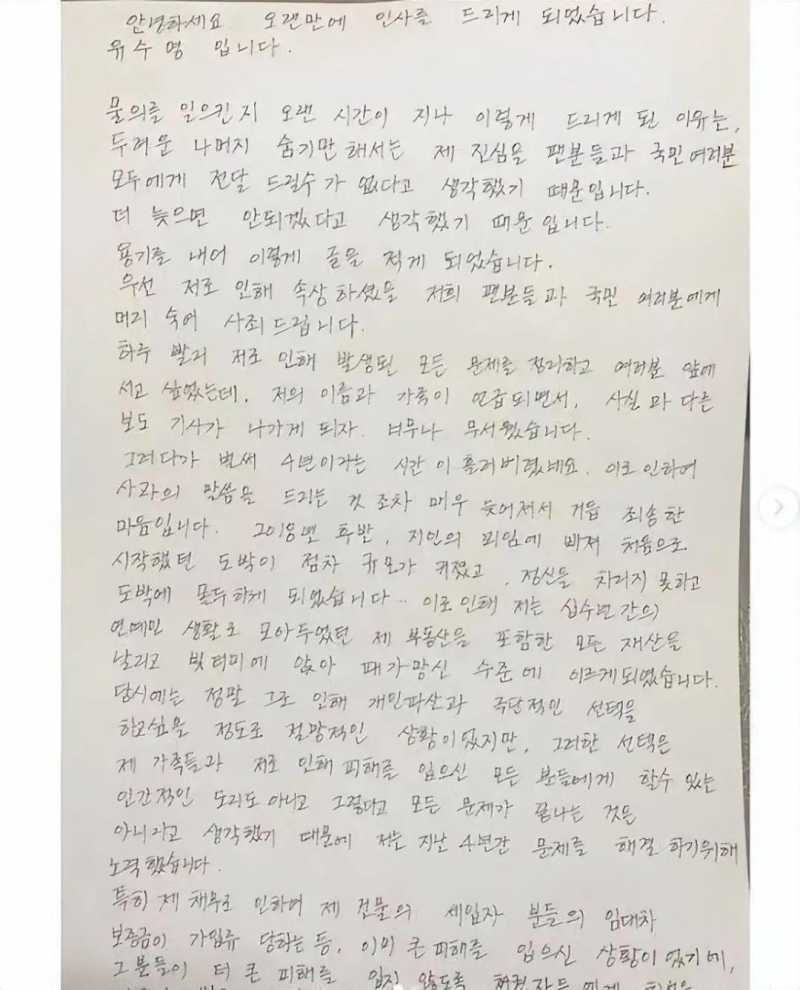 안녕하세요 오랜만에 인사를 드리게 되었습니다.
유수영 입니다.
물의를 일으킨지 오랜 시간이 지나 이렇게 드리게 된 이유는,
두려운 나머지 숨기만 해서는 제 진심을 팬분들과 국민 여러분
모두에게 전달 드릴수가 없다고 생각했기 때문입니다.
더 늦으면 안되겠다고 생각했기 때문입니다.
용기를 내어 이렇게 글을 적게 되었습니다.
우선 저로 인해 속상하셨을 저희 팬분들과 국민 여러분에게
머리 숙여 사죄드립니다.
하루 빨리 저로 인해 발생된 모든 문제를 정리하고 여러분 앞에
서고 싶었는데, 저의 이름과 가족이 언급되면서, 사실과 다른
보도 기사가 나가게 되자 너무나 무서웠습니다.
그러다가 벌써 4년이라는 시간이 흘러버렸네요. 이로 인하여
사과의 말씀을 드리는 것 조차 매우 늦어져서 거듭 죄송한
마음입니다. 2018년 후반, 지인의 꾀임에 빠져 처음으로
시작했던 도박이 점차 규모가 커졌고, 정신을 차리지 못하고
도박에 몰두하게 되었습니다.. 이로 인해 저는 십수년간의
연예인 생활로 모아두었던 제 부동산을 포함한 모든 재산을
날리고 빚더미에 앉아 패가망신 수준에 이르게되었습니다.
당시에는 정말 그로 인해 개인파산과 극단적인 선택을
하고싶을 정도로 절망적인 상황이었지만, 그러한 선택은
제 가족들과 저로 인해 피해를 입으신 모든 분들에게 할수 있는
인간적인 도리도 아니고 그렇다고 모든 문제가 끝나는 것은
아니라고 생각했기 때문에 저는 지난 4년간 문제를 해결 하기위해
노력했습니다.
특히 제 채무로 인하여 제 건물의 세입자 분들의 임대차
보증금이 가압류 당하는 등, 이미 큰 피해를 입으신 상황이었기에,
그분들이 더 큰 피해를 입지 않도록 채권자들에게